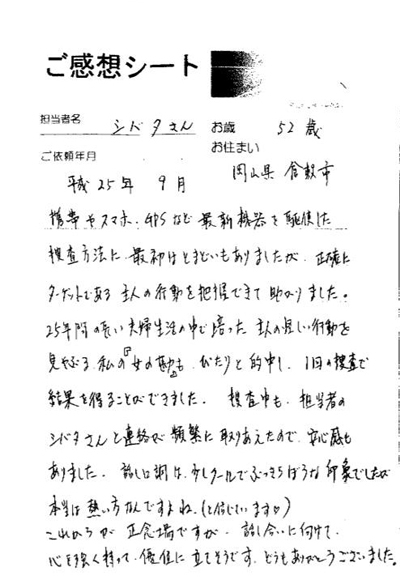 ご感想シート
担当者名 シバタさん お歳 52歳
お住まい
ご依頼年月 岡山県 倉敷市
平成25年 9月
携帯やスマホ、GPSなど最新機器を駆使した
捜査方法に最初はとまどいもありましたが、正確に
ターゲットである主人の行動を把握できて助かりました。
25年間の長い夫婦生活の中で培った主人の怪しい行動を
見やぶる私の『女の勘』も、ぴたりと的中し、1回の捜査で
結果を得ることができました。捜査中も、担当者の
シバタさんと連絡が頻繁に取りあえたので、安心感も
ありました。話し口調は、少しクールでぶっきらぼうな印象でしたが
本当は熱い方なんですよね、(と信じています♡)
これからが正念場ですが、話し合いに向けて、
心を強く持って、優位に立てそうです。どうもありがとうございました。